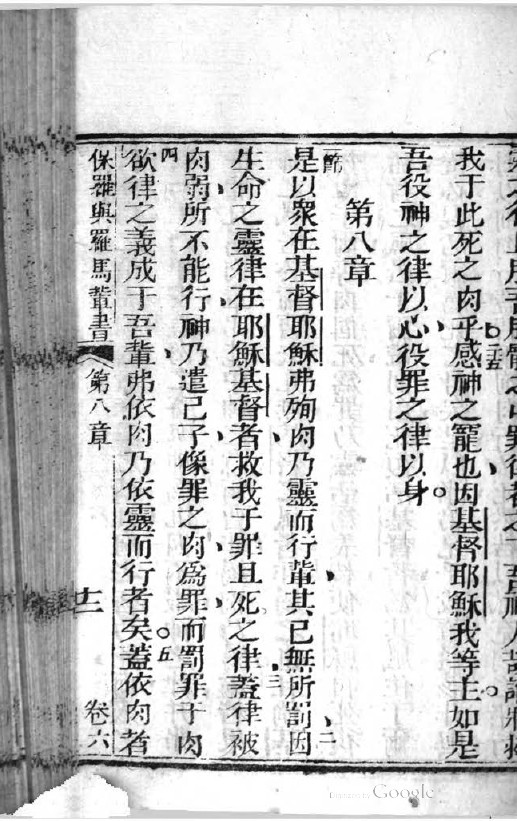 我于此死之肉乎感神之寵也因基督耶穌我等主如是
吾役神之律以心役罪之律以身。
第八章
一節
是以衆在基督耶穌弗殉肉乃靈而行輩其已無所罰因二
生命之靈律在耶穌基督者救我于罪且死之律三蓋律被
肉弱所不能行神乃遣己子像罪之肉為罪而罰罪于肉
四欲律之義成于吾輩弗依肉乃依靈而行者矣。五蓋依肉者
保羅與羅馬輩書 第八章 十二 卷六
Digitized by Google